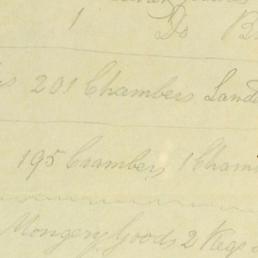 1 Do
201 Chambers Land
195 Crambers 1 Cham
Mongery Goods 2 Kegs